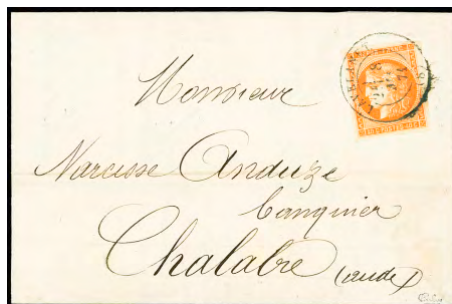 Monsieur
Narcisse Anduze
banquier
Chalabre (aude)